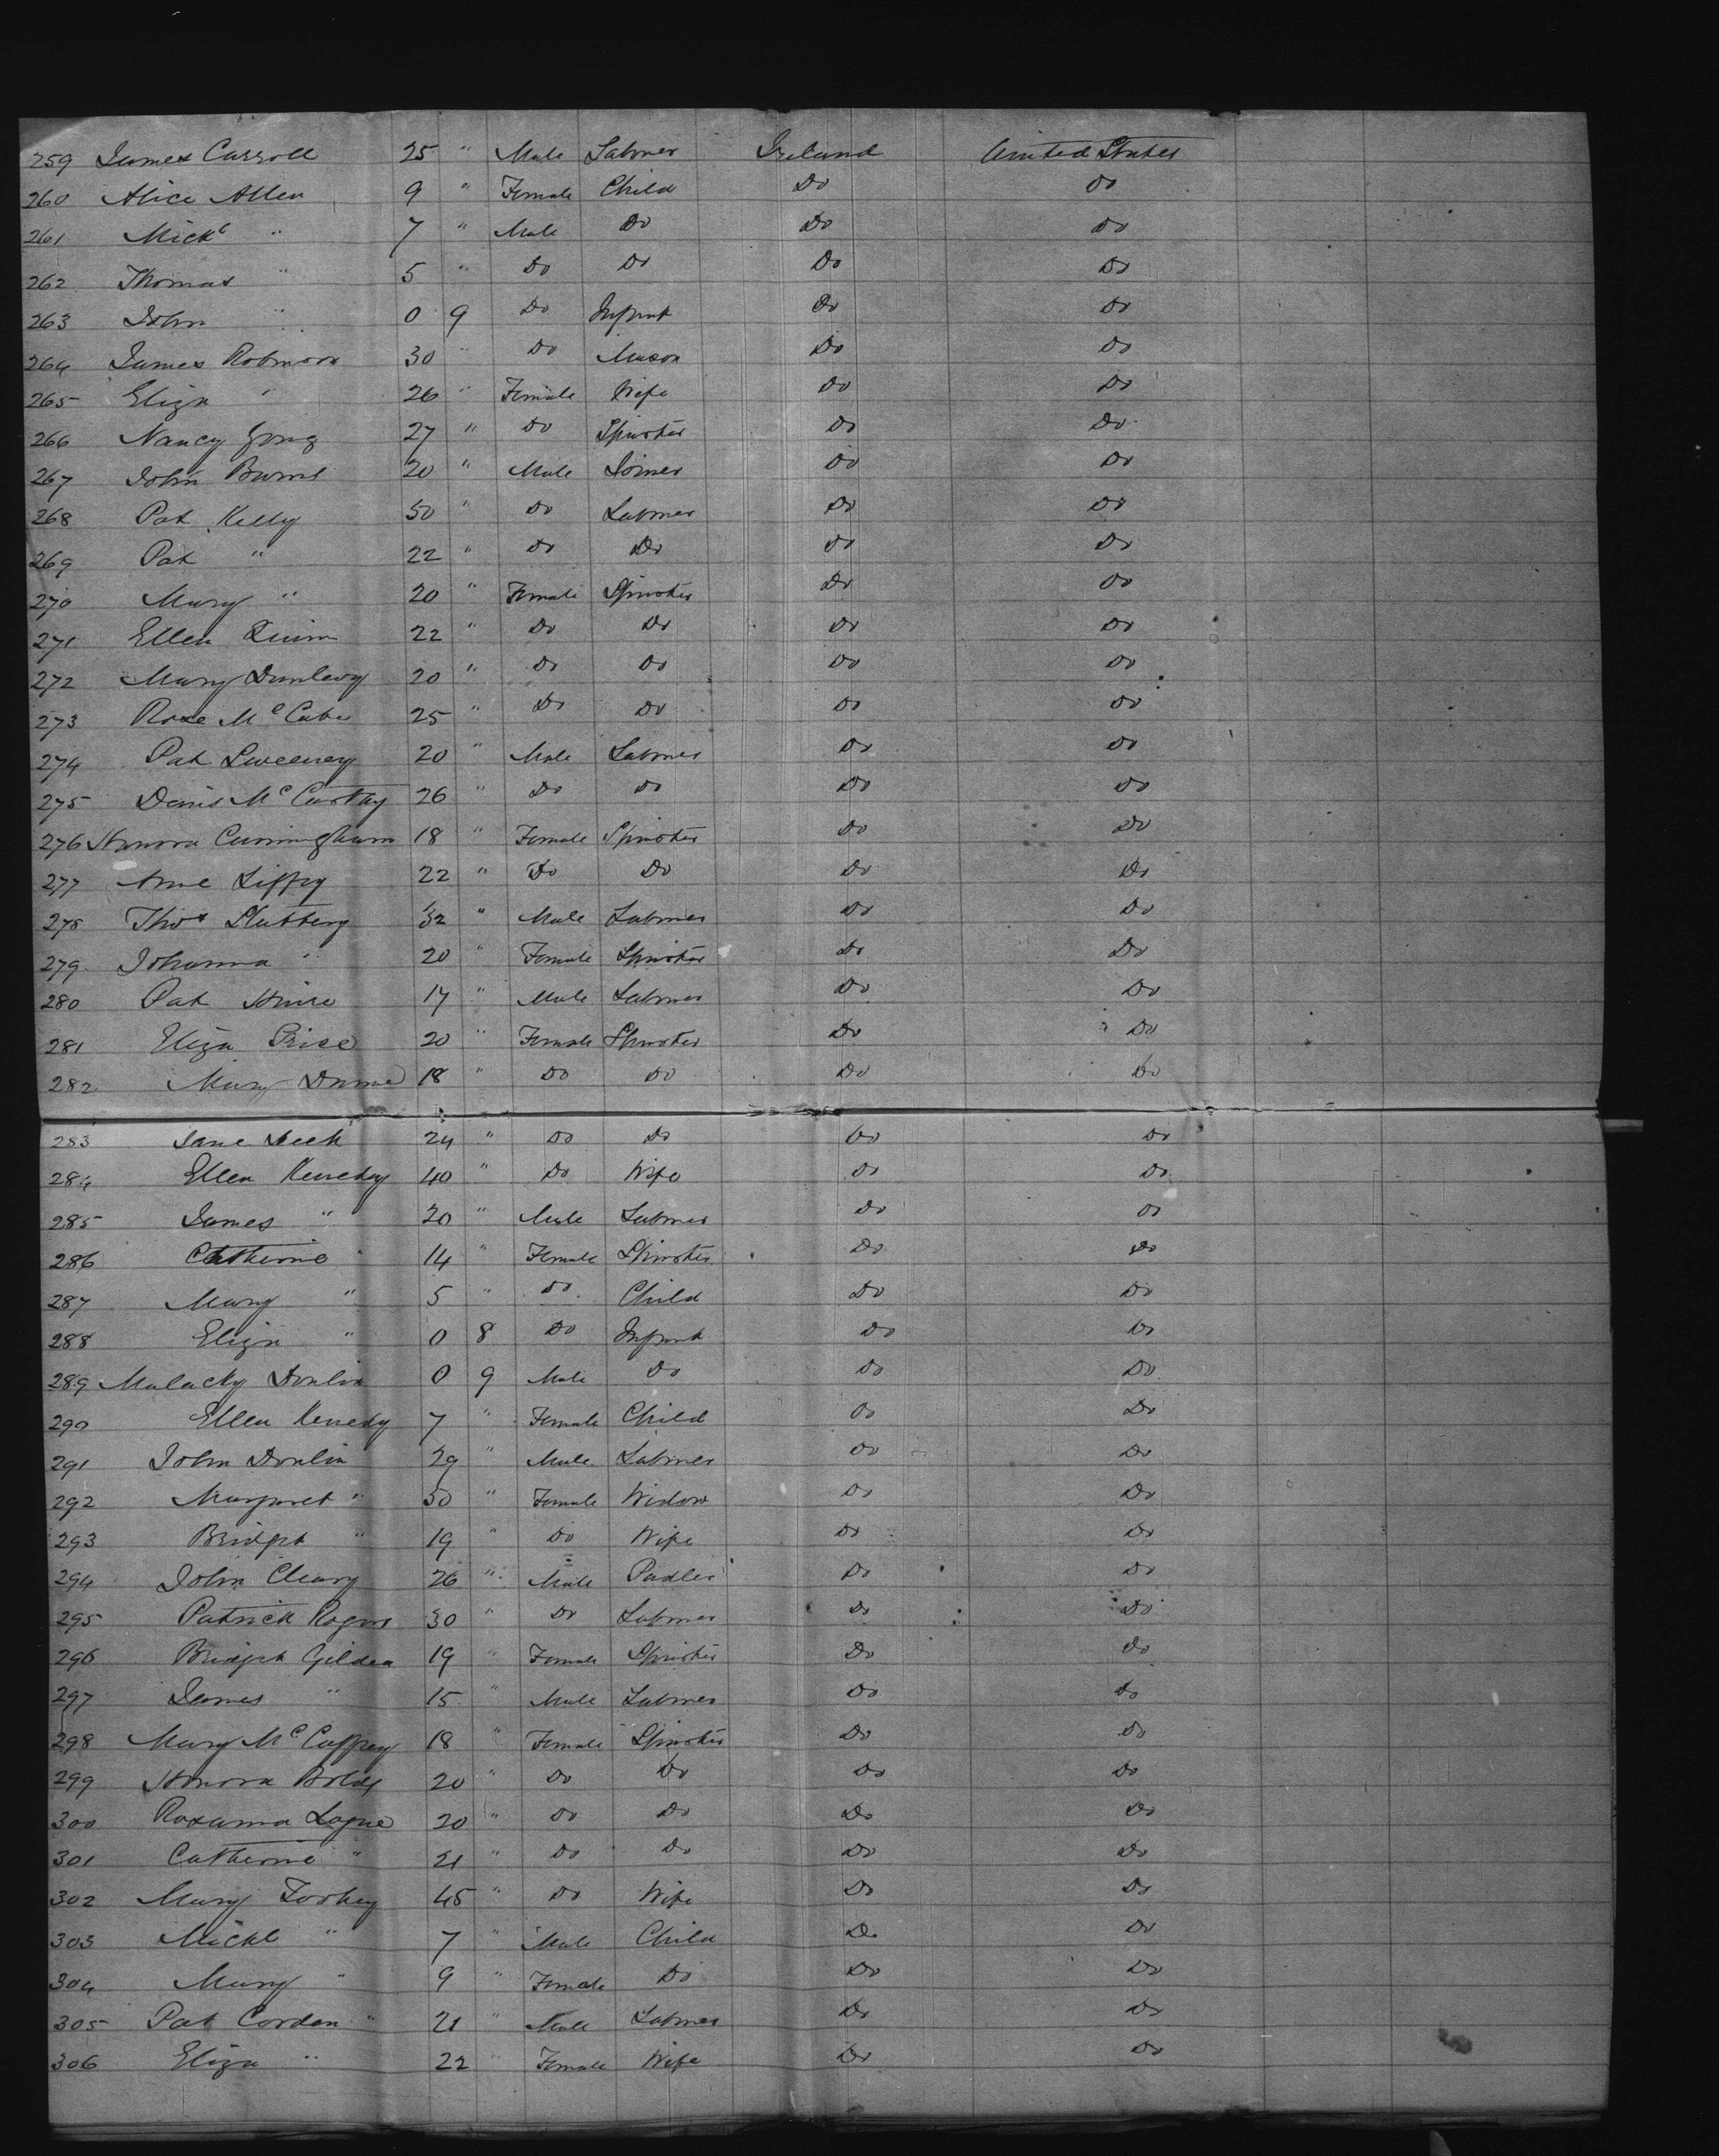 259 James Carroll 25 " Male Labourer Ireland United States
260 Alice Allen 9 " Female Child Do Do
261 Mick " 7 " Male Do Do Do
262 Thomas " 5 " Do Do Do Do
263 John " 0 9 Do Infant Do Do
264 James Robinson 30 " Do Mason Do Do
265 Eliza " 26 " Female Wife Do Do
266 Nancy 27 " Do Spinster Do Do
267 John Burns 20 " Male Joiner Do Do
268 Pat Kelly 50 " Do Labourer Do Do
269 Pat " 22 " Do Do Do Do
270 Mary " 20 " Female Spinster Do Do
271 Ellen Quinn 22 " Do Do Do Do
272 Mary Dunlevy 20 " Do Do Do Do
273 Rose McCabe 25 " Do Do Do Do
274 Pat Sweeney 20 " Male Labourer Do Do
275 Denis McCarthy 26 " Do Do Do Do
276 Honora Cunningham 18 " Female Spinster Do Do
277 Anne Liffey 22 " Do Do Do Do
278 Thos Slattery 32 " Male Labourer Do Do
279 Johanna " 20 " Female Spinster Do Do
280 Pat 17 " Male Labourer Do Do
281 Eliza Price 20 " Female Spinster Do Do
282 Mary Dunne 18 " Do Do Do Do
283 Jane Leech 24 " Do Do Do Do
284 Ellen Kennedy 40 " Do Wife Do Do
285 James " 20 " Male Labourer Do Do
286 Catherine " 14 " Female Spinster Do Do
287 Mary " 5 " Do Child Do Do
288 Eliza " 0 8 Do Infant Do Do
289 Malacky Donlin 0 9 Male Do Do Do
290 Ellen Kennedy 7 " Female Child Do Do
291 John Donlin 29 " Male Labourer Do Do
292 Margaret " 50 " Female Widow Do Do
293 Bridget " 19 " Do Wife Do Do
294 John Cleary 26 " Male Do Do
295 Patrick Rogers 30 " Do Labourer Do Do
296 Bridget Gildea 19 " Female Spinster Do Do
297 James " 15 " Male Labourer Do Do
298 Mary McCaffrey 18 " Female Spinster Do Do
299 Honora 20 " Do Do Do Do
300 Roxanna Logue 20 " Do Do Do Do
301 Catherine " 21 " Do Do Do Do
302 Mary 45 " Do Wife Do Do
303 Mickl " 7 " Male Child Do Do
304 Mary " 9 " Female Do Do Do
305 Pat Corden " 21 " Male Labourer Do Do
306 Eliza " 22 " Female Wife Do Do